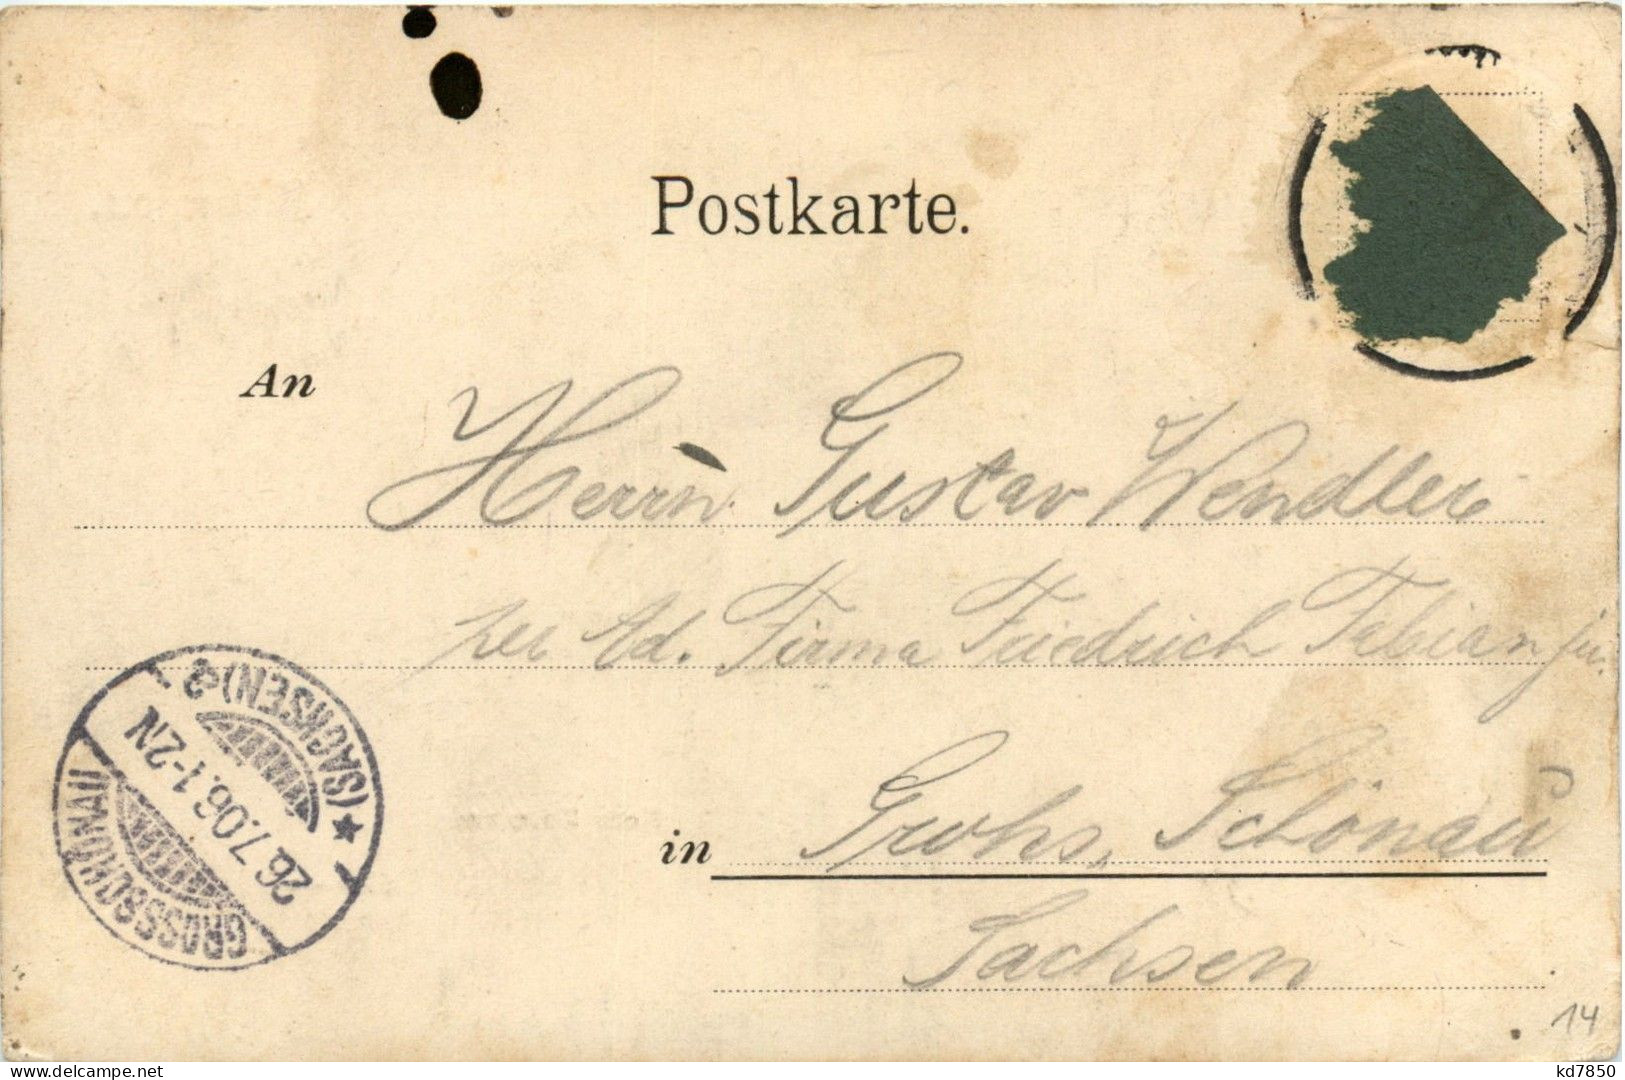 Postkarte.
An Herrn Gustav Wendler
per Ad. Firma Friedrich Fabian jun.
in Grohs, Schönau
Sachsen
GROSSSCHÖNAU
26.7.06.1-2N
★(SACHSEN)a
14
delcampe.net
kd7850